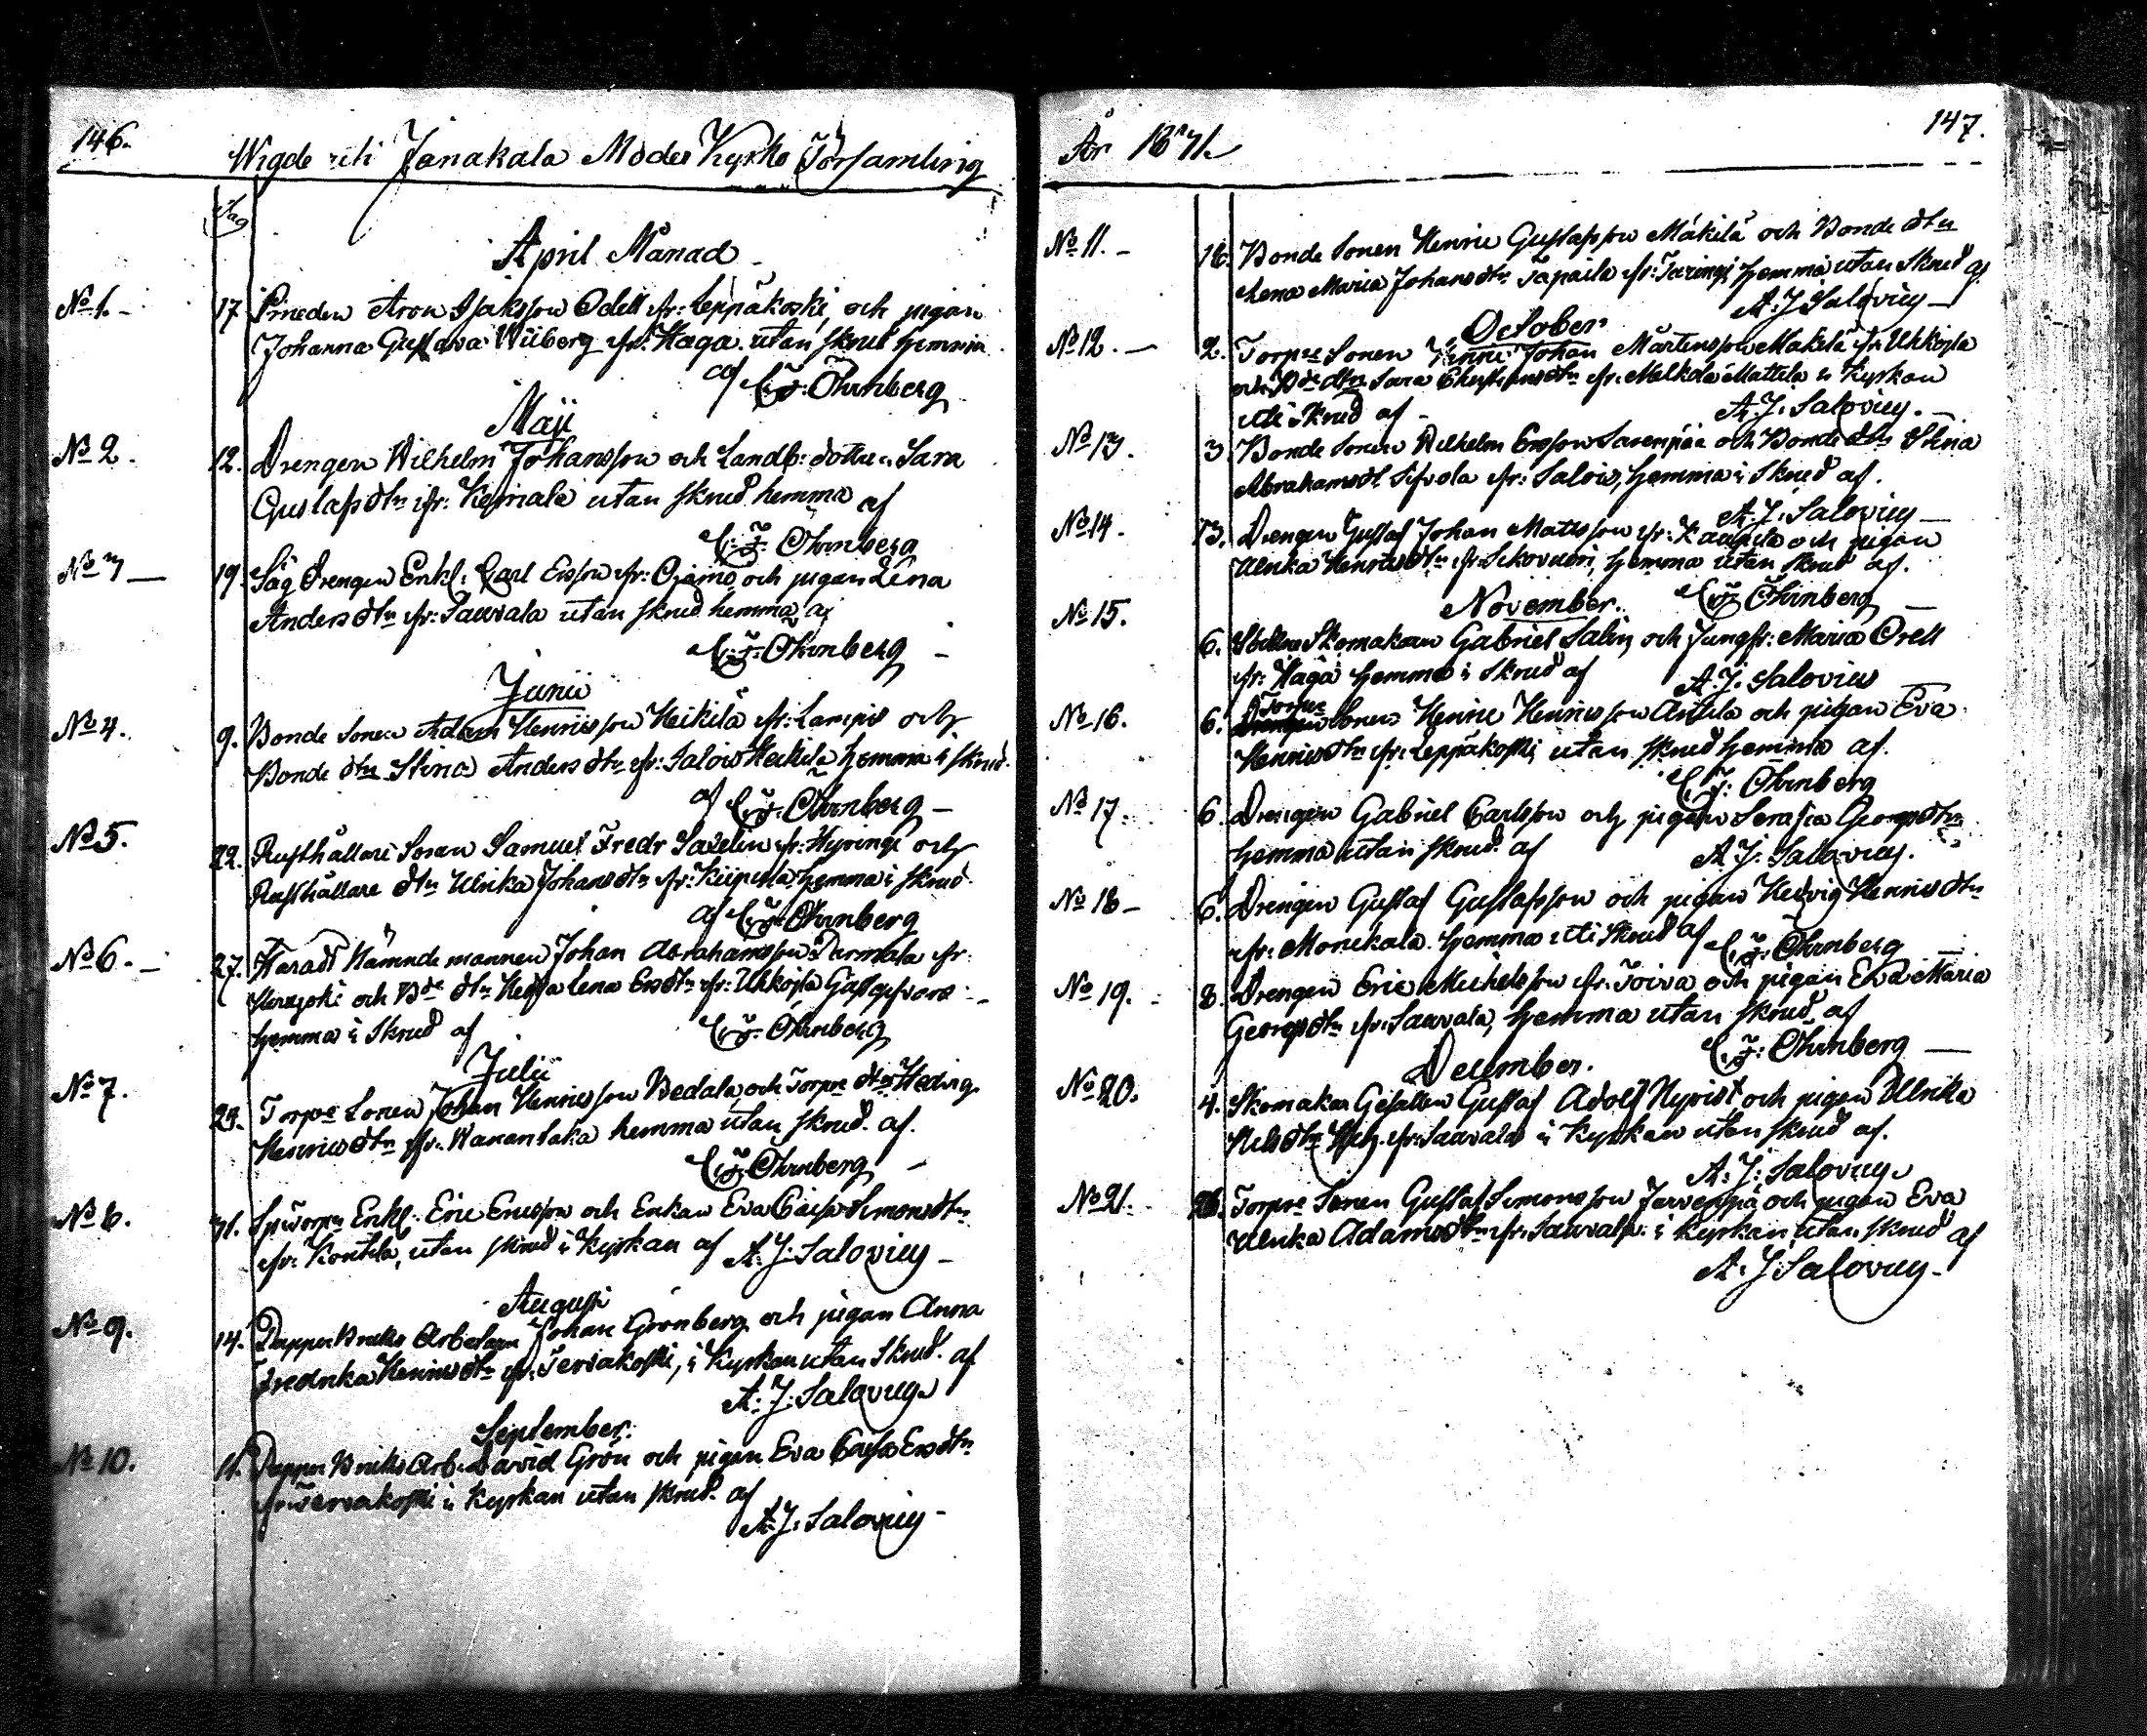 146.
Wigde uti Janakala Moder Kyrko Församling
Dag
April Månad
No 1. 17. Smeden Aron Isaksson Odell fr: Leppäkoski, och pigan
Johanna Gustava Wiiberg fr: Haga utan skrud hemma
af C. J. Öhrnberg
Maji
No 2. 12. Drengen Wilhelm Johansson och Landb: dotter Sara
Gustafs dtr fr: Kernala utan skrud hemma af
C. J. Öhrnberg
No 3 19. Såg Drengen Enkl: Carl Ersson fr: Ojamo och pigan Lena
Anders dtr fr: Saurala utan skrud hemma af
C. J. Öhrnberg
Junii
No 4. 9. Bonde Sonen Adam Henricsson Heikilä fr: Lampis och
Bonde dtr Stina Anders dtr fr: Salois Heikilä hemma i skrud.
af C. J. Öhrnberg
No 5. 22. Rusthållare Sonen Samuel Fredr Saxelin fr: och
Rusthållare dtr Ulrika Johans dtr fr: hemma i skrud.
af C. J. Öhrnberg
No 6. 27. Härads Nämndemannen Johan Abrahamsson fr:
och Bde dtr Hedda Lena Ers dtr fr: Uhkoila
hemma i Skrud af C. J. Öhrnberg
Julii
No 7. 23. Torpre Sonen Johan Henricsson och Torpre dtr Hedvig
Henrics dtr fr: Wanantaka hemma utan skrud. af.
C. J. Öhrnberg
No 8. 31. Enkl: Eric Ericsson och Enkan Eva Caisa Simons dtr
fr: Kontila, utan skrud i Kyrkan af A. J. Salovius
Augusti
No 9. 14. Pappersbruks Arbetaren Johan Grönberg och pigan Anna
Fredrika Henrics dtr fr: Tervakoski, i Kyrkan utan Skrud. af
A. J. Salovius
September.
No 10. 11. Pappersbruks Arb. David Grön och pigan Eva Caisa Ers dtr
fr: Tervakoski i Kyrkan utan skrud. af
A. J. Salovius
År 1831.
147.
No 11. 18. Bonde Sonen Henric Gustafsson Mäkilä och Bonde dtr
Lena Maria Johans dtr Tapaila fr: Taringi hemma utan Skrud af
A. J. Salovius
October
No 12. 2. Torpre Sonen Johan Mårtensson Mäkilä fr: Uhkoila
och Bde dtr Sara Christians dtr fr: Melkola Mattila i Kyrkan
uti Skrud af A. J. Salovius.
No 13. 3. Bonde Sonen Wilhelm Ersson Sarenpää och Bonde dtr Stina
Abrahams dr fr: Salois, hemma i Skrud af.
A. J. Salovius
No 14. 13. Drengen Gustaf Johan Matsson fr: och pigan
Ulrika Henrics dtr fr: hemma utan Skrud af.
C. J. Öhrnberg
November.
No 15. 6. Skomakaren Gabriel Salin, och Jungfr: Maria Orell
fr: Haga hemma i Skrud af A. J. Salovius
No 16. 6. Torpre Sonen Henric Henricsson Anttila och pigan Eva
Henrics dtr fr: Leppäkoski utan skrud hemma af.
C. J. Öhrnberg
No 17. 6. Drengen Gabriel Carlsson och pigan Serafia Georgs dtr
hemma utan skrud. af A. J. Salovius.
No 18 6. Drengen Gustaf Gustafsson och pigan Hedvig Henrics dtr
fr: Monikala hemma uti Skrud af C. J. Öhrnberg
No 19. 8. Drengen Eric Michelsson fr: Toiva och pigan Eva Maria
Georgs dtr fr: Saurala, hemma utan skrud af
C. J. Öhrnberg
December.
No 20. 4. Skomakar Gesällen Gustaf Adolf Nyqvist och pigan Ullrika
Nils dtr fr: Saurala i Kyrkan utan skrud af.
A. J. Salovius
No 21. 26. Torpre Sonen Gustaf Simonsson Jervenpä och pigan Eva
Ulrika Adams dtr fr: Saurala i Kyrkan utan skrud af
A. J. Salovius